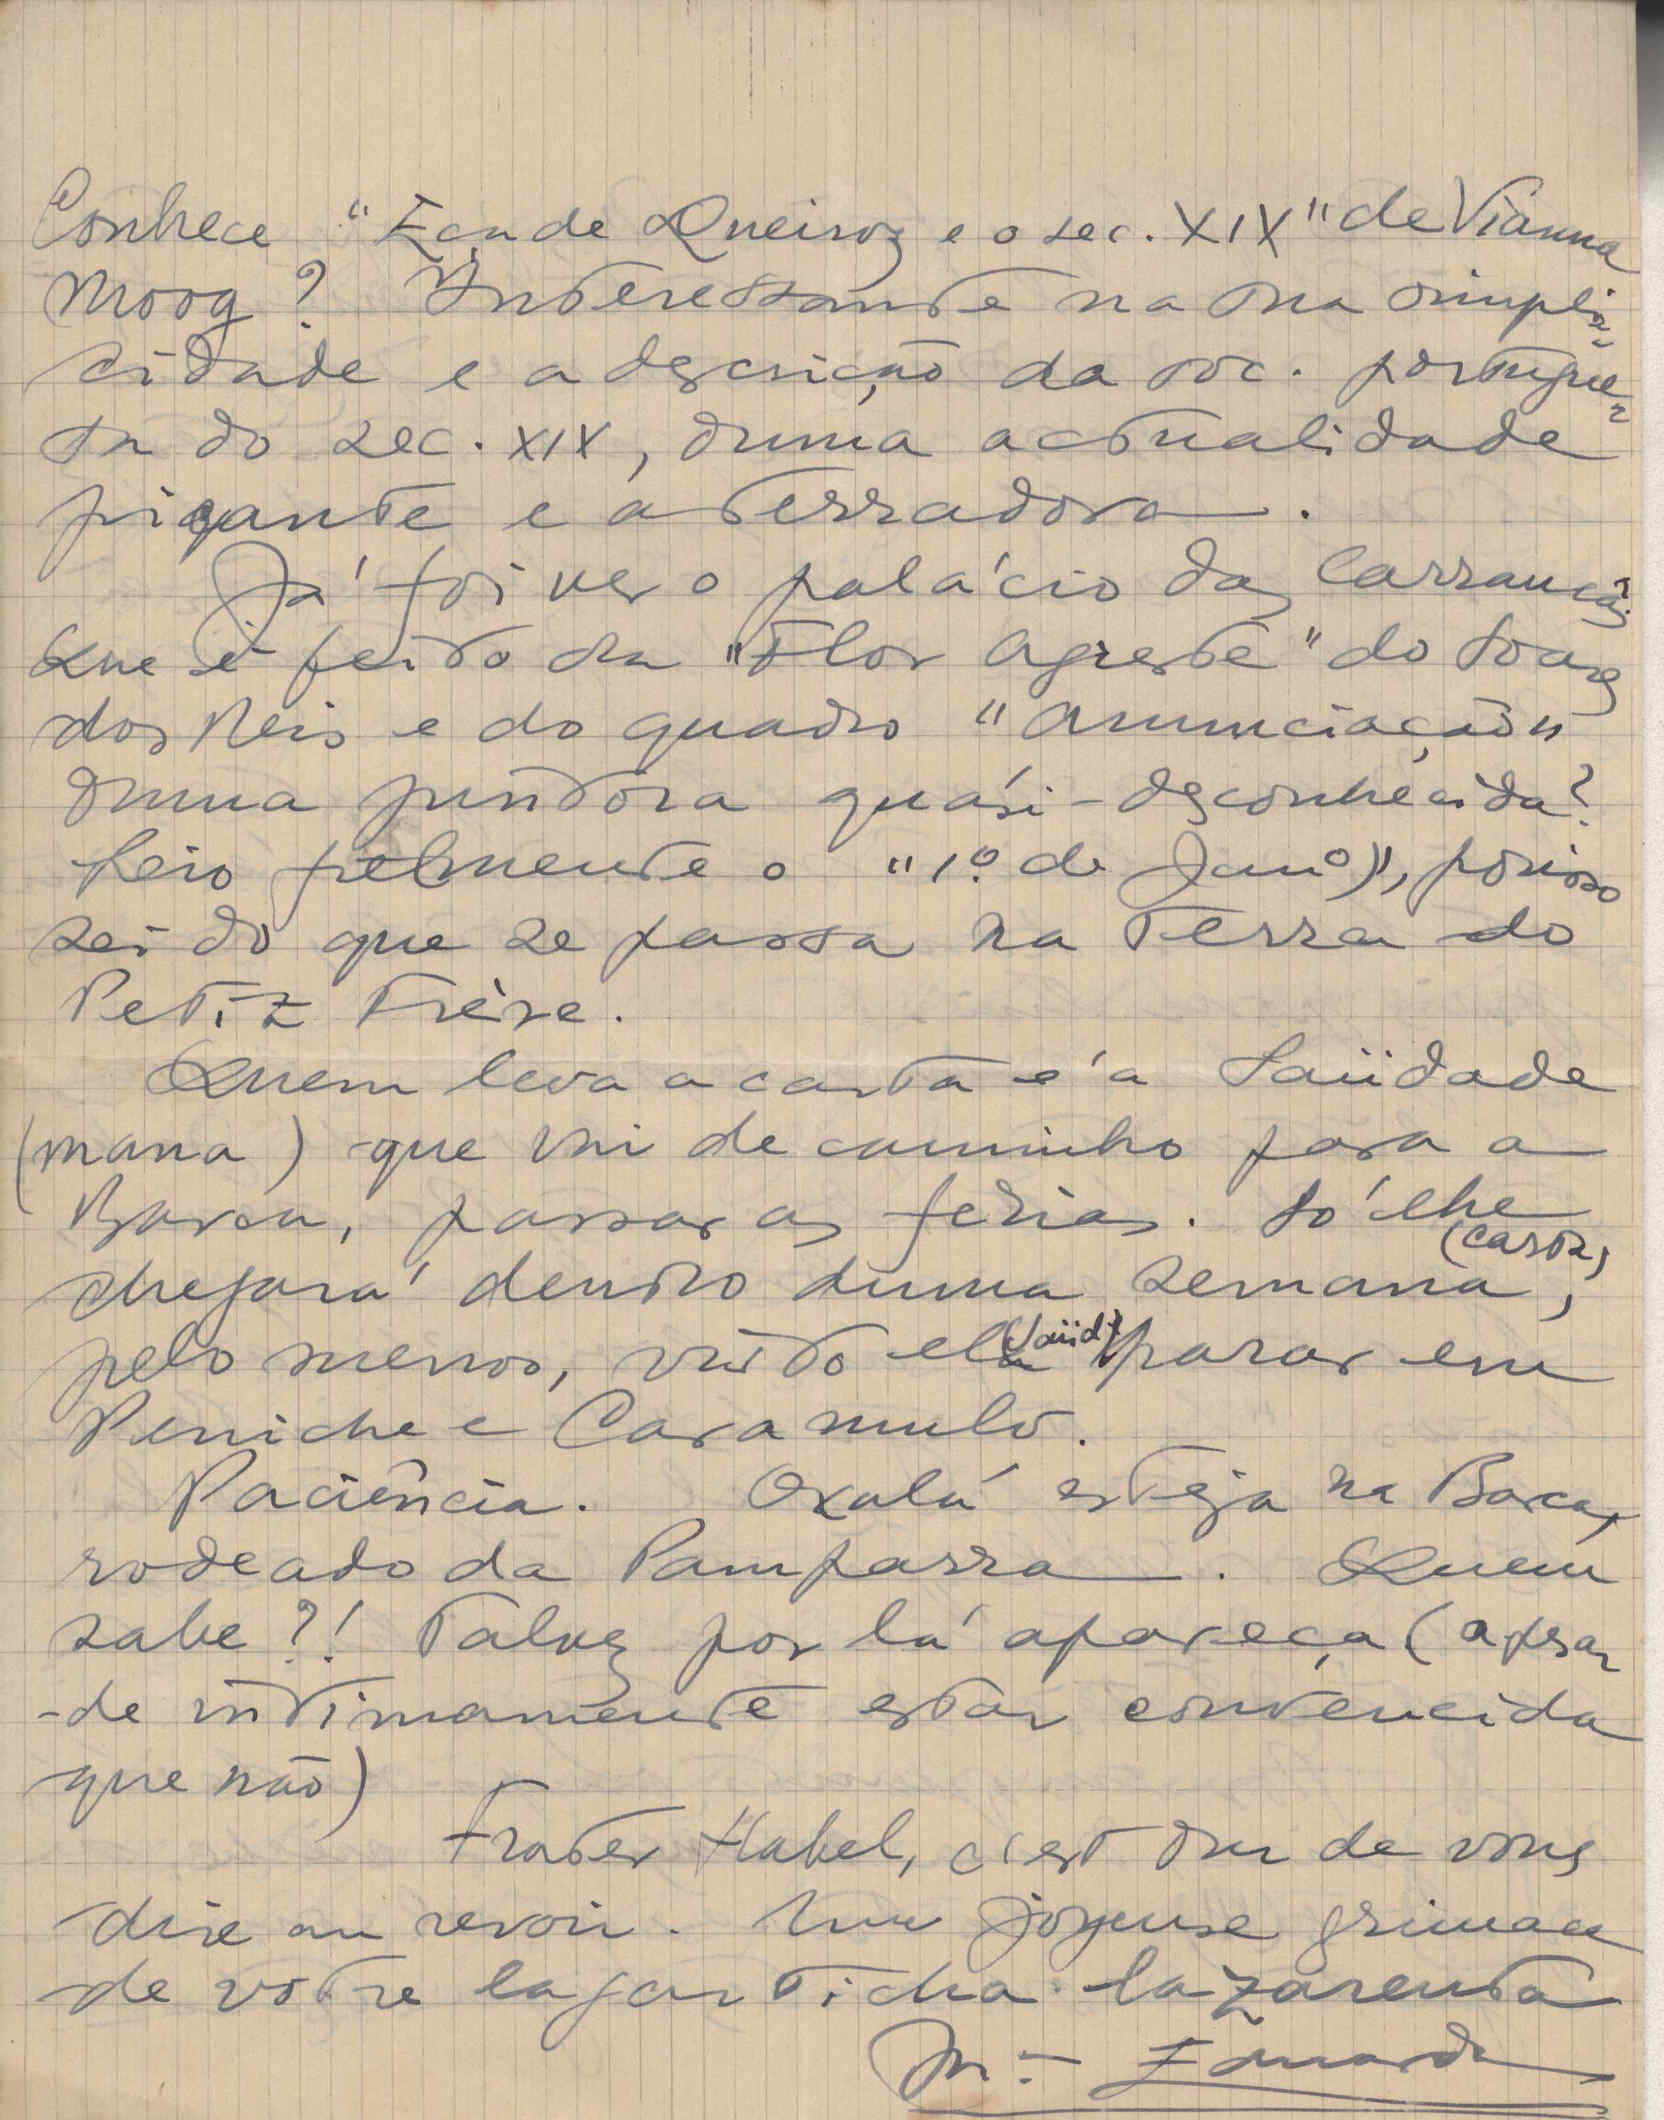 Conhece "Eça de Queiroz e o sec. XIX" de Vianna
Moog? Interessante na sua simpli-
cidade e a descrição da soc. portugue-
sa do sec. XIX, duma actualidade
picante e aterradora.
Já foi ver o palácio das Carrancas
Que é feito da "Flor Agreste" do Soares
dos Reis e do quadro "Anunciação"
duma pintora quási-desconhecida?
Leio fielmente o "1º de Janº)", porisso
sei do que se passa na terra do
Petiz Frère.
Quem leva a carta é a Saüdade
(mana) que vai de caminho para a
Barca, passar as ferias. Só lhe
chegará dentro duma semana, (carta)
pelo menos, visto ela (Saüd.) parar em
Peniche e Caramulo.
Paciência. Oxalá esteja na Barca,
rodeado da Pamparra. Quem
sabe?! Talvez por lá apareça (apesar
-de intimamente estar convencida
que não)
Frater Habel, c'est dur de vous
dire au revoir. Une joyeuse grimace
de votre lagarticha lazarenta
Mª Eduarda